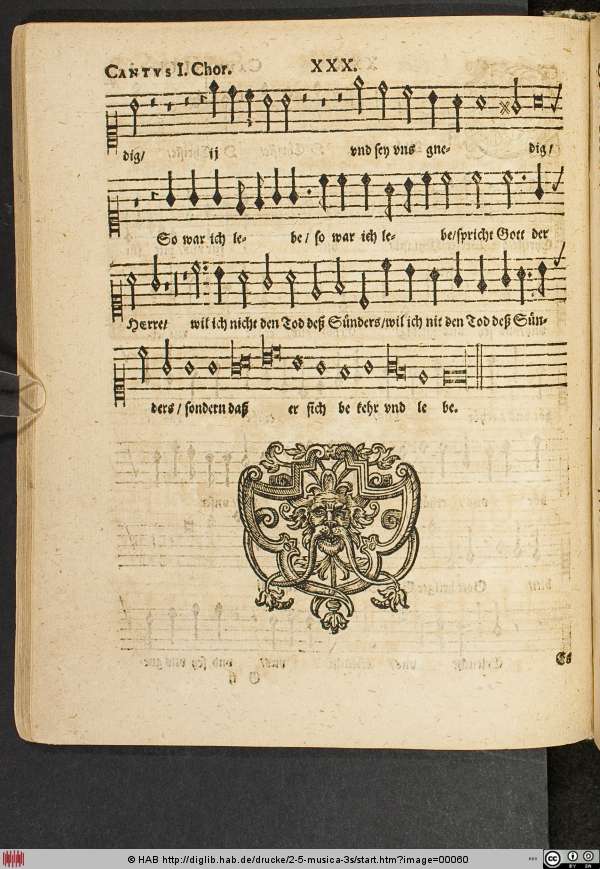 CANTVS I. Chor. XXX.
dig/ ij vnd sey vns gne- dig/
So war ich le- be/ so war ich le- be/spricht Gott der
HErre/ wil ich nicht den Tod deß Sünders/wil ich nit den Tod deß Sün-
ders/ sondern daß er sich be kehr vnd le be.
Es
© HAB http://diglib.hab.de/drucke/2-5-musica-3s/start.htm?image=00060